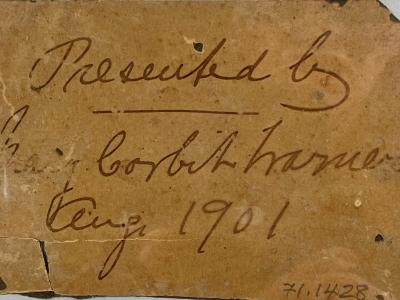 Presented by
Corbit Warner
Aug, 1901
71.1428